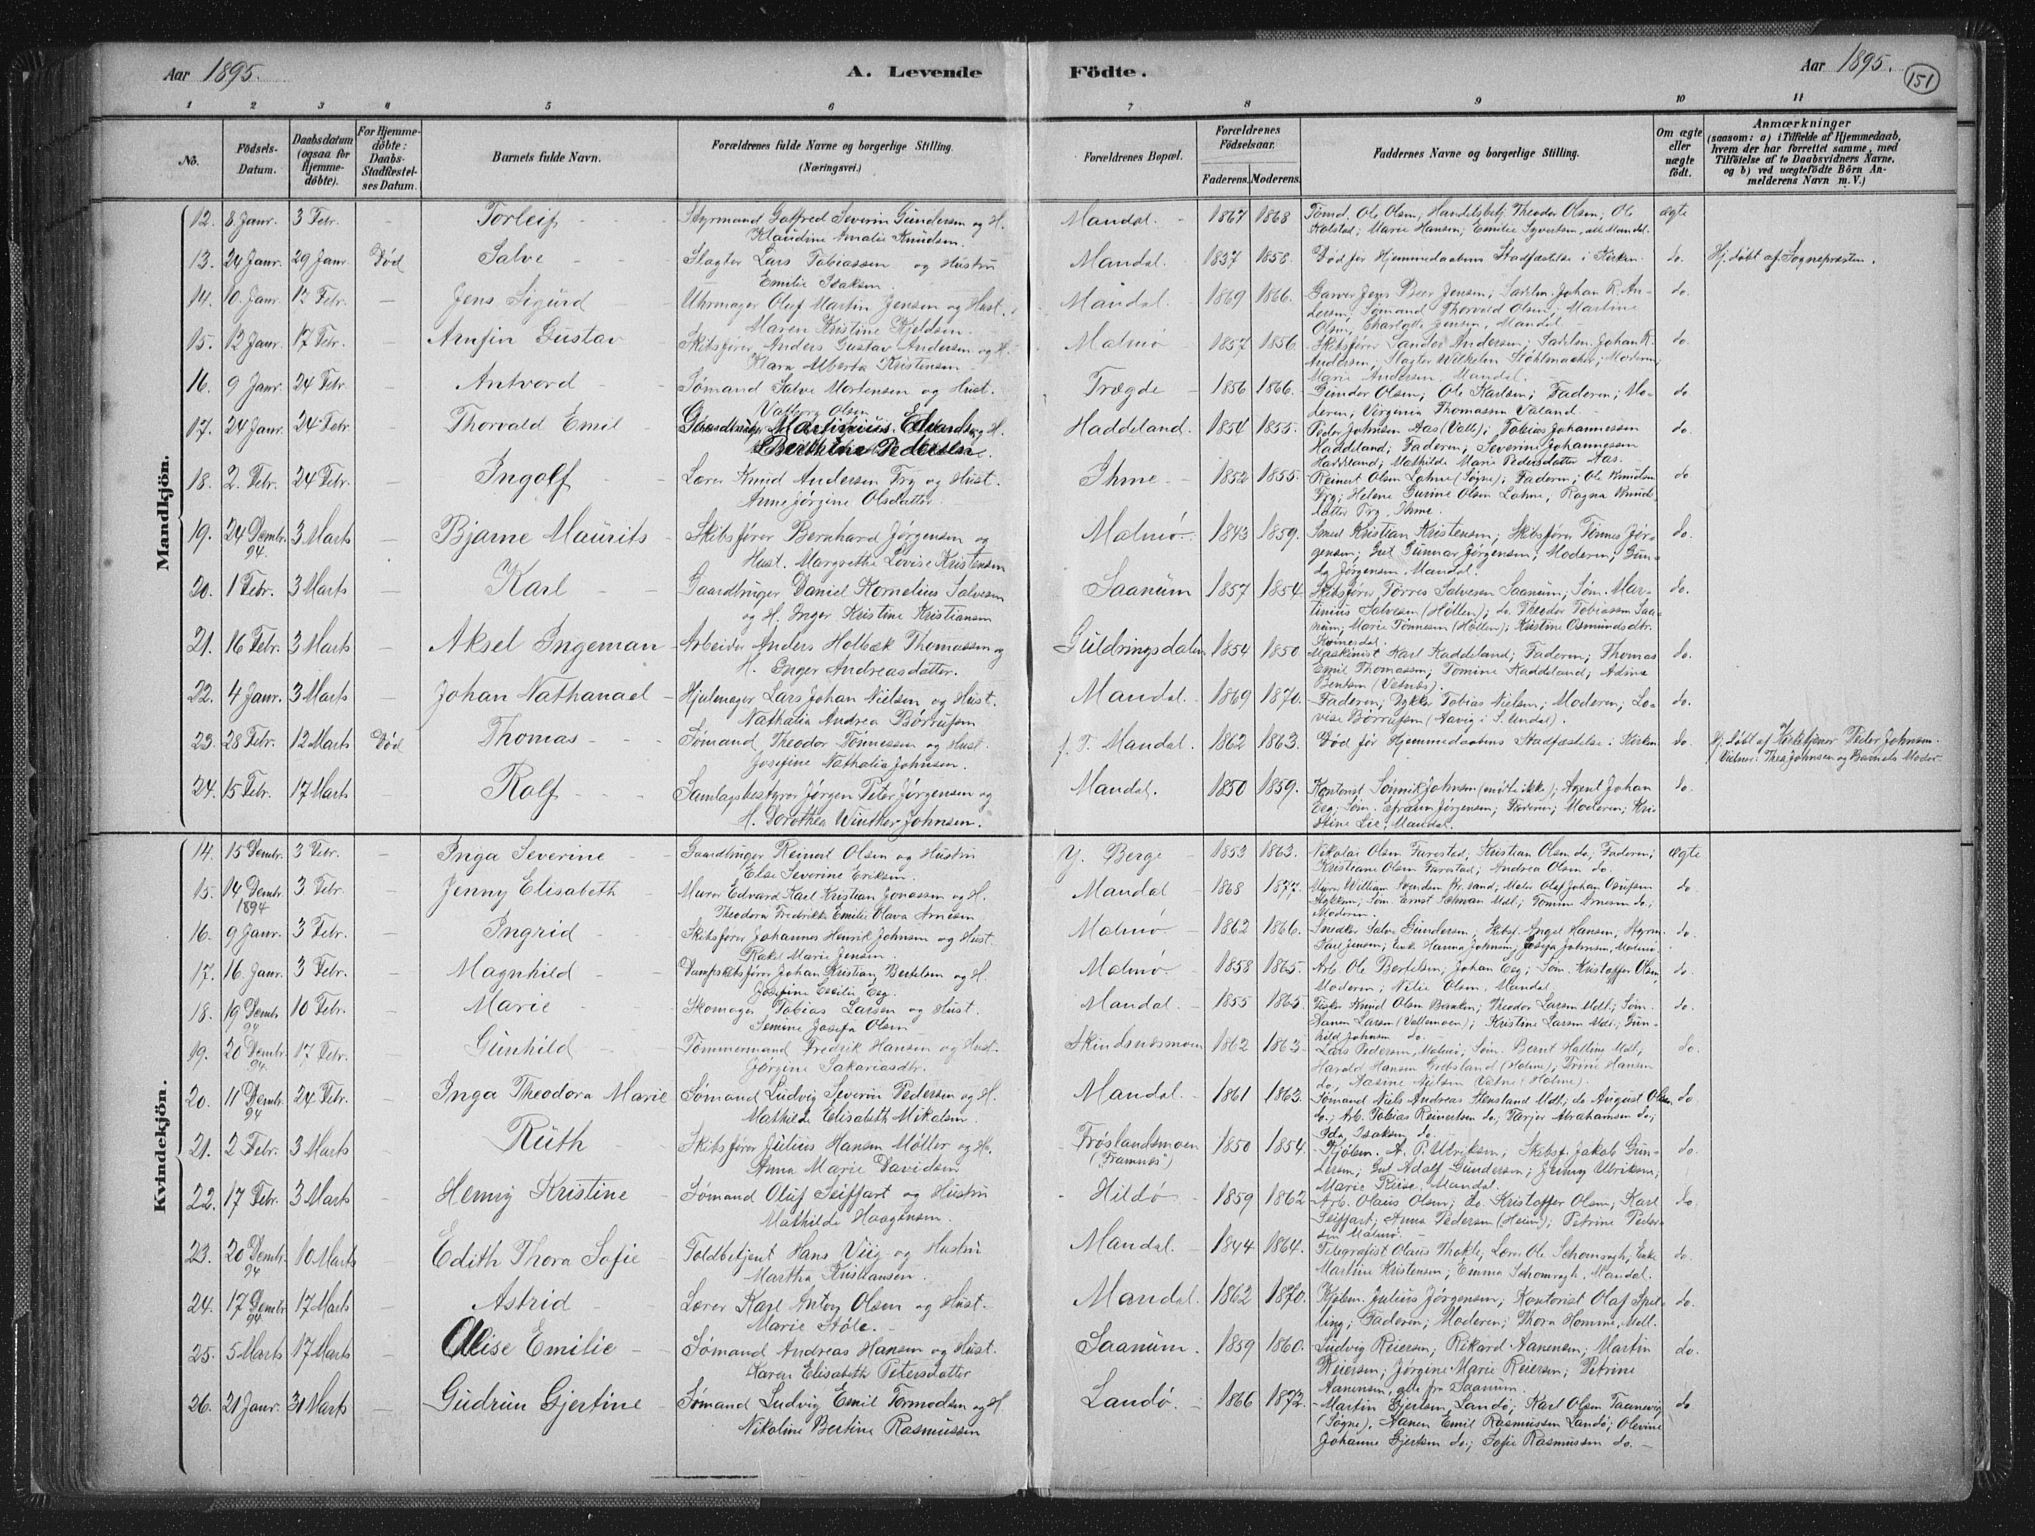 Aar 1895. A. Levende Födte. Aar 1895. 151
1 2 3 4 5 6 7 8 9 10 11
No. Födsels-Datum. Daabsdatum (ogsaa for Hjemmedöbte). For Hjemmedöbte: Daabs-Stadfæstelses Datum. Barnets fulde Navn. Forældrenes fulde Navne og borgerlige Stilling. (Næringsvei.) Forældrenes Bopæl. Forældrenes Födselsaar. Faderens. Moderens. Faddernes Navne og borgerlige Stilling. Om ægte eller uægte födt. Anmærkninger (saasom: a) i Tilfælde af Hjemmedaab, hvem der har forrettet samme, med Tilföielse af to Daabsvidners Navne, og b) ved uægtefödte Börn Anmelderens Navn m. V.)
Mandkjön.
12. 8 Janr. 3 Febr. - Torleif - Styrmand Gotfred Severin Gundersen og H. Mandal. 1867 1868 Tømd. Ole Olsen; Handelsbetj. Theodor Olsen; Ole ægte
Klaudine Amalie Knudsen. Kolstad; Marie Hansen; Emilie Syvertsen, alle Mandal.
13. 24 Janr. 29 Janr. Død Salve - Slagter Lars Tobiassen og Hustru Mandal. 1837 1858. Død før Hjemmedaabens Stadfæstelse i Kirken do. Hj. døbt af Sognepræsten.
Emilie Isaksen.
14. 10 Janr. 12 Febr. - Jens Sigurd - Uhrmager Oluf Martin Jensen og Hust. Mandal. 1869 1866. Garver Jens Beer Jensen; Sadelm. Johan R. An- do.
Maren Kristine Kjeldsen. dersen; Sømand Thorvald Olsen; Martine
Olsen, Charlotte Jensen, Mandal.
15. 12 Janr. 17 Febr. - Arnfin Gustav Skibsfører Anders Gustav Andersen og H. Malmø 1857 1856. Skibsfører Sander Andersen; Sadelm. Johan R. do.
Klara Alberta Kristensen Andersen; Slagter Wilhelm Stohlmacher; Moderen;
Marie Andersen, Mandal.
16. 9 Janr. 24 Febr. - Antvord - Sømand Salve Mortensen og Hust. Trægde 1856 1866. Gunder Olsen; Ole Karlsen; Faderen; Mo- do
Valborg Olsen deren, Virginia Thomassen Valand.
17. 24 Janr. 24 Febr. - Thorvald Emil Gaardbruger Martinius Edvard og H. Haddeland. 1854 1855. Peder Johnsen Aas (Valle); Tobias Johannessen do
Berthine Pedersen. Haddeland; Faderen; Severine Johannesen
Haddeland; Mathilde Marie Pedersdatter Aas.
18. 2 Febr. 24 Febr. - Ingolf - Lærer Knud Andersen Try og Hust. Ihme 1852 1855. Reinert Olsen Lohne (Søgne); Faderen; Ole Knudsen do
Anne Jørgine Olsdatter Try; Helene Gurine Olsen Lohne, Ragna Knuds-
datter Try, Ihme.
19. 24 Dembr. 94. 3 Marts - Bjarne Maurits Skibsfører Bernhard Jørgensen og Malmø. 1843 1859. Smed Kristian Kristensen; Skibsfører Tønnes Jør- do.
Hust. Margrethe Lovise Kristensen gensen; Gut Gunnar Jørgensen; Moderen; Gun-
da Jørgensen, Mandal.
20. 1 Febr. 3 Marts - Karl - Gaardbruger Daniel Kornelius Salvesen Saanum 1857 1854 Skibsfører Tørres Salvesen Saanum; Søm. Mar- do.
og H. Inger Kristine Kristiansen tinius Salvesen (Høllen); do. Theodor Tobiassen Saa-
num; Marie Tønnesen (Høllen); Kristine Osmundsdtr.
21. 16 Febr. 3 Marts - Aksel Ingeman - Arbeider Anders Holbæk Thomassen og Guldringsdalen 1854 1850 Maskinist Karl Haddeland; Faderen; Thomas do.
H. Enger Andreasdatter. Emil Thomassen; Tomine Haddeland;
22. 4 Janr. 3 Marts - Johan Nathanael - Hjulmager Lars Johan Nielsen og Hust. Mandal. 1869 1870. Faderen; Dykker Tobias Nielsen; Moderen; Lo- do.
Nathalia Andrea Børrusen vise Børrusen (Aavig i S. Undal).
23. 28 Febr. 12 Marts Død Thomas - Sømand Theodor Tønnessen og Hust. f. T. Mandal. 1862 1863. Død før Hjemmedaabens Stadfæstelse i Kirken do. Hj. døbt af Kirketjener Peder Johnsen.
Josefine Nathalia Johnsen. Vidner: Thea Johnsen og Barnets Moder
24. 15 Febr. 17 Marts - Rolf - Samlagsbestyrer Jørgen Peter Jørgensen og Mandal. 1850 1859. Kontorist Sønnik Johnsen (mødte ikke); Agent Johan do.
H. Dorothea Winther Johnsen. Eeg; Søm. Efraim Jørgensen; Faderen; Moderen; Kri-
stine Lie, Mandal.
Kvindekjön.
14. 15 Dembr. 3 Febr. - Inga Severine - Gaardbruger Reinert Olsen og Hustru Y. Berge 1853 1863. Nikolai Olsen Farestad; Kristian Olsen do; Faderen; ægte
Else Severine Eriksen. Kristiane Olsen Farestad; Andrea Olsen do.
15. 14 Dembr. 1894 3 Febr. - Jenny Elisabeth - Murer Edvard Karl Kristian Jonassen og H. Mandal 1868 1877. Murer William Svendsen Kr.sand; Maler Olaf Johan do.
Theodora Fredrikke Emilie Olava Arnesen Søm. Ernst Mdl; Tomine Arnesen do;
Moderen.
16. 9 Janr. 3 Febr. - Ingrid - Skibsfører Johannes Henrik Johnsen og Hust. Malmø 1862 1866. Snedker Salve Gundersen; Skibsf. Angel Hansen, Styrm. do.
Rakel Marie Jensen. Karl Jensen; Enke Hanna Johnsen, Josefa Johnsen, Malmø.
17. 16 Janr. 3 Febr. - Magnhild - Dampskibsfører Johan Kristian Bertelsen og H. Malmø 1858 1865. Arb. Ole Bertelsen; Johan Eeg; Søm. Kristoffer Olsen, do.
Josefine Cecilie Eeg. Moderen; Nilie Olsen, Mandal.
18. 19 Dembr. 94 10 Febr. - Marie - Skomager Tobias Larsen og Hust. Mandal 1855 1865. Fisker Knud Olsen Banken; Theodor Larsen Mdl; Søm. do.
Semine Josefa Olsen Hanen Larsen (Vallemoen); Kristine Larsen Mdl; Gun-
hild Johnsen do.
19. 20 Dembr. 94. 17 Febr. - Gunhild - Tømmermand Fredrik Hansen og Hust. Skindsnesmoen 1862 1863. Lars Pedersen, Malmø; Søm. Bernt Halling Mdl; do.
Jørgine Sakariasdtr. Harald Hansen Grebsland (Holme); Trine Hansen
do, Aasine Nielsen Valne (Holme).
20. 11 Dembr. 94 24 Febr. - Inga Theodora Marie Sømand Ludvig Severin Pedersen og H. Mandal 1861 1863. Sømand Niels Andreas Stensland Mdl; do August Olsen do.
Mathilde Elisabeth Mikalsen do.; Arb. Tobias Reinertsen do; Tarjer Abrahamsen do;
Ida Isaksen do.
21. 2 Febr. 3 Marts - Ruth - Skibsfører Julius Hansen Møller og H. Frøslandsmoen 1850 1854. Kjøbm. A. P. Ulriksen; Skibsf. Jakob Gun- do.
Anna Marie Davidsen ("Framnæs") dersen; Gut Adolf Gundersen; Jenny Ulriksen;
Marie Reise, Mandal.
22. 17 Febr. 3 Marts - Henny Kristine - Sømand Oluf Seiffart og Hustru Hildø 1859 1862 Arb. Olaus Olsen; do. Kristoffer Olsen, Karl do.
Mathilde Haagensen. Seiffart; Anna Pedersen (Heim); Petrine Peder-
sen Malmø.
23. 20 Dembr. 94 10 Marts - Edith Thora Sofie Toldbetjent Hans Viig og Hustru Mandal. 1844 1864. Telegrafist Olaus Thokle; Lærer Ole Schomragh, Enke do.
Martha Kristiansen. Martine Kristensen; Emma Schomragh, Mandal.
24. 17 Dembr. 94 17 Marts - Astrid - Lærer Karl Anton Olsen og Hust. Mandal. 1862 1870. Kjøbm. Julius Jørgensen; Kontorist Olaf Spet- do.
Marie Støle. ling; Faderen; Moderen; Thora Homme, Mdl.
25. 5 Marts 17 Marts - Alise Emilie - Sømand Andreas Hansen og Hust. Saanum. 1859 1860. Ludvig Reiersen; Rikard Aanensen; Martin do.
Karen Elisabeth Petersdatter Reiersen; Jørgine Marie Reiersen; Petrine
Aanensen, alle fra Saanum.
26. 21 Janr. 31 Marts - Gudrun Gjertine Sømand Ludvig Emil Tormodsen og H. Landø. 1866 1872. Martin Gjertsen, Landø; Karl Olsen Taanevig do
Nikoline Bertine Rasmussen (Søgne), Aanen Emil Rasmussen Landø; Olevine
Johanne Gjertsen do; Sofie Rasmussen do.